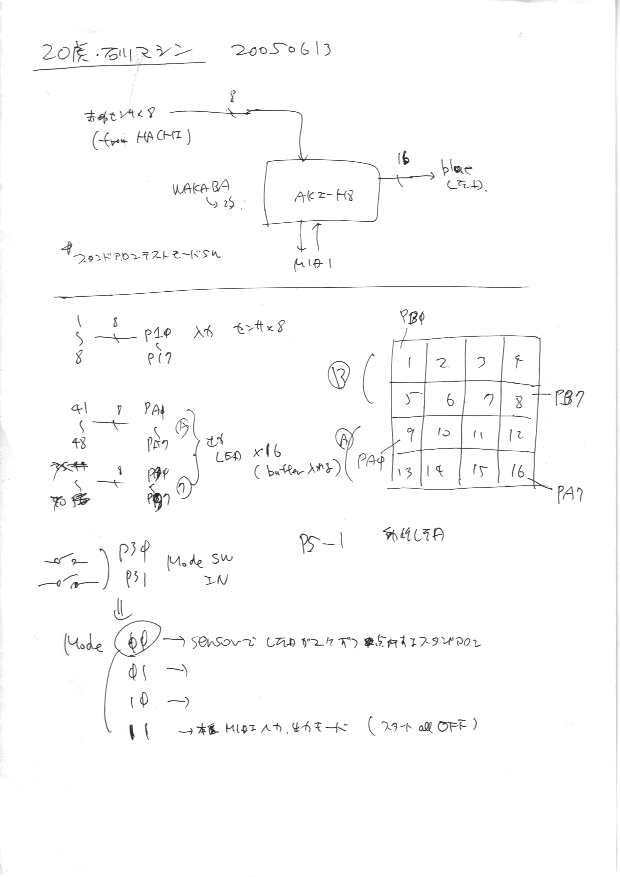 20虎・石川マシン 20050613
赤外センサ×8 8
(from HACHI)
16
WAKABA
AKI-H8
blue
(LED)
MIDI
スタンドアロンテストモードSW
1 8 P1φ 入力 センサ×8
8 P17
PBφ
1 2 3 4
B
5 6 7 8 PB7
A 9 10 11 12
PAφ
13 14 15 16
PA7
41 8 PAφ
48 PA7
出力
LED ×16
(buffer入れる)
8
P5-1 外付LED
P3φ Mode SW
P31 IN
Mode φφ → sensorで LEDが2ケずつ点灯するスタンドアロン
φ1 →
1φ →
11 → 本番 MIDI入力、出力モード (スタート all OFF)